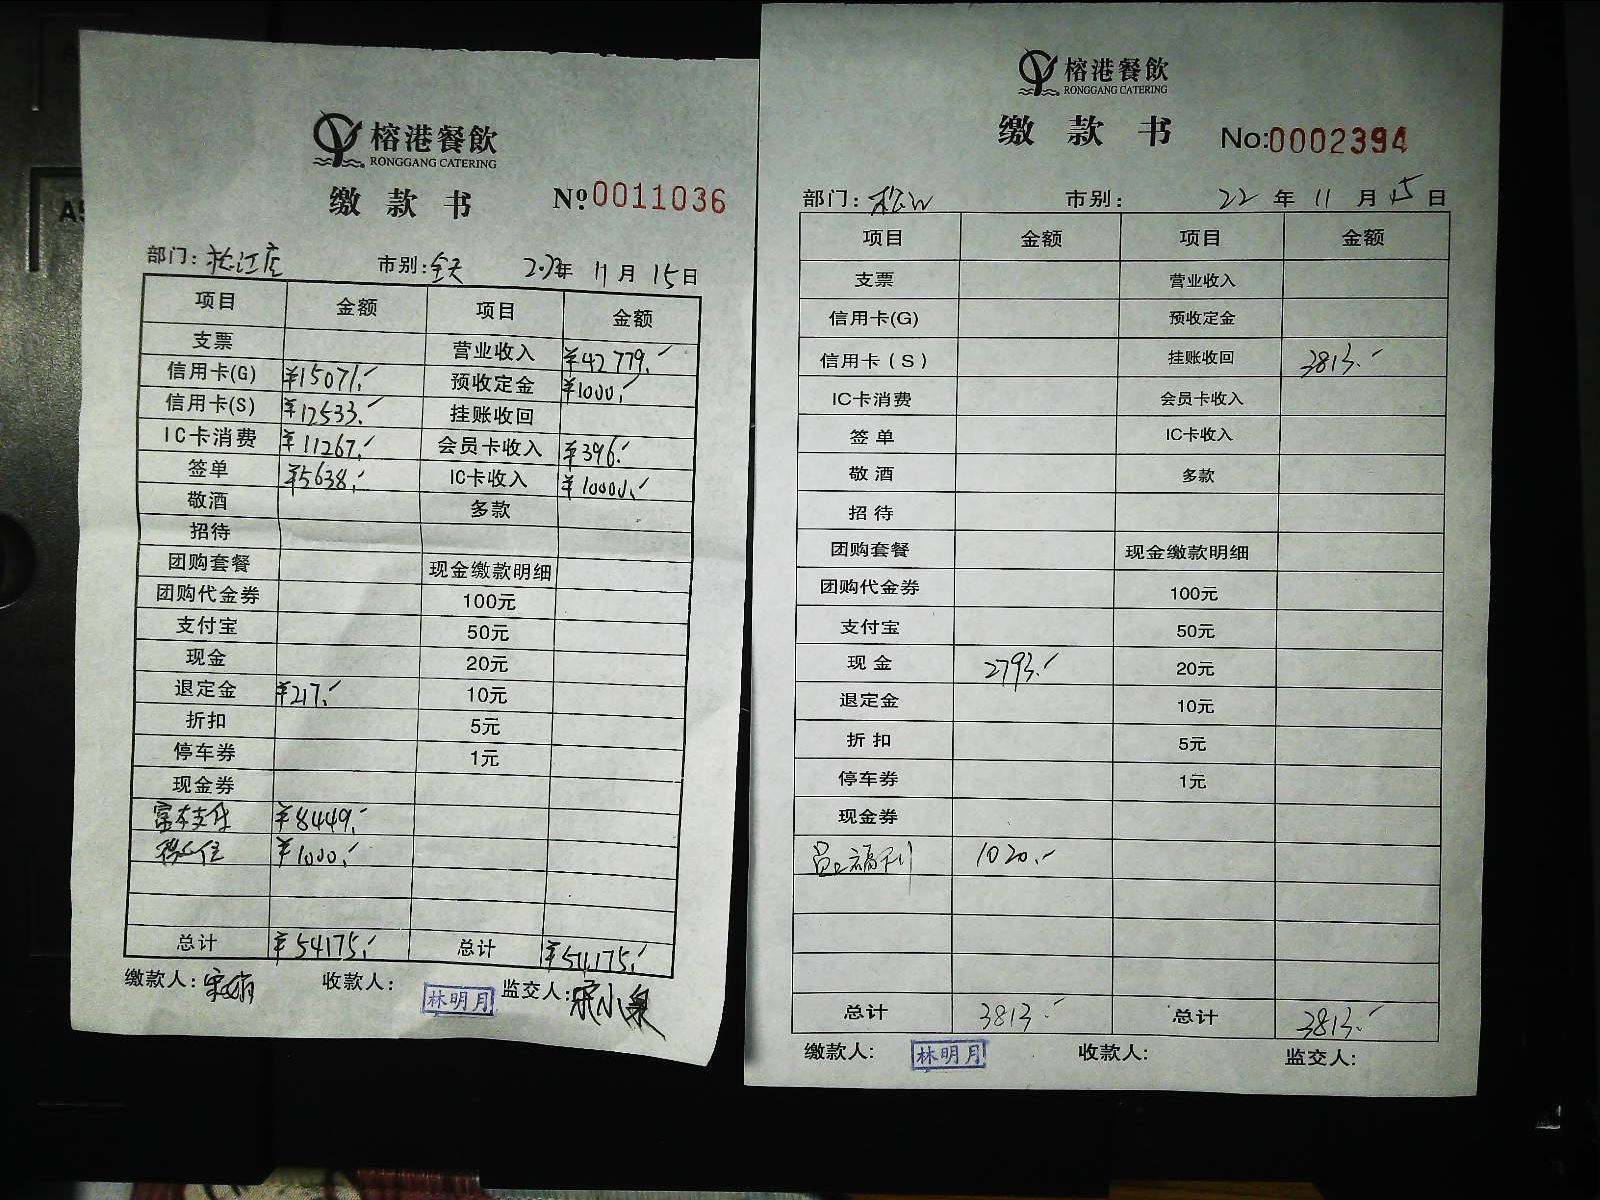 榕港餐飲
RONGGANG CATERING
缴款书 №0011036
部门: 松江店 市别: 全天 2022年 11月 15日
项目 金额 项目 金额
支票 营业收入 ¥42779.-
信用卡(G) ¥15071.- 预收定金 ¥1000.-
信用卡(S) ¥12533.- 挂账收回
IC卡消费 ¥11267.- 会员卡收入 ¥396.-
签单 ¥5638.- IC卡收入 ¥10000.-
敬酒 多款
招待
团购套餐 现金缴款明细
团购代金券 100元
支付宝 50元
现金 20元
退定金 ¥217.- 10元
折扣 5元
停车券 1元
现金券
支付 ¥8449.-
¥1000.-
总计 ¥54175.- 总计 ¥54175.-
缴款人: 收款人: 林明月 监交人: 宋小泉
榕港餐飲
RONGGANG CATERING
缴款书 No:0002394
部门: 松江 市别: 22年 11月 15日
项目 金额 项目 金额
支票 营业收入
信用卡(G) 预收定金
信用卡(S) 挂账收回 3813.-
IC卡消费 会员卡收入
签单 IC卡收入
敬酒 多款
招待
团购套餐 现金缴款明细
团购代金券 100元
支付宝 50元
现金 2793.- 20元
退定金 10元
折扣 5元
停车券 1元
现金券
员工福利 1020.-
总计 3813.- 总计 3813.-
缴款人: 林明月 收款人: 监交人: